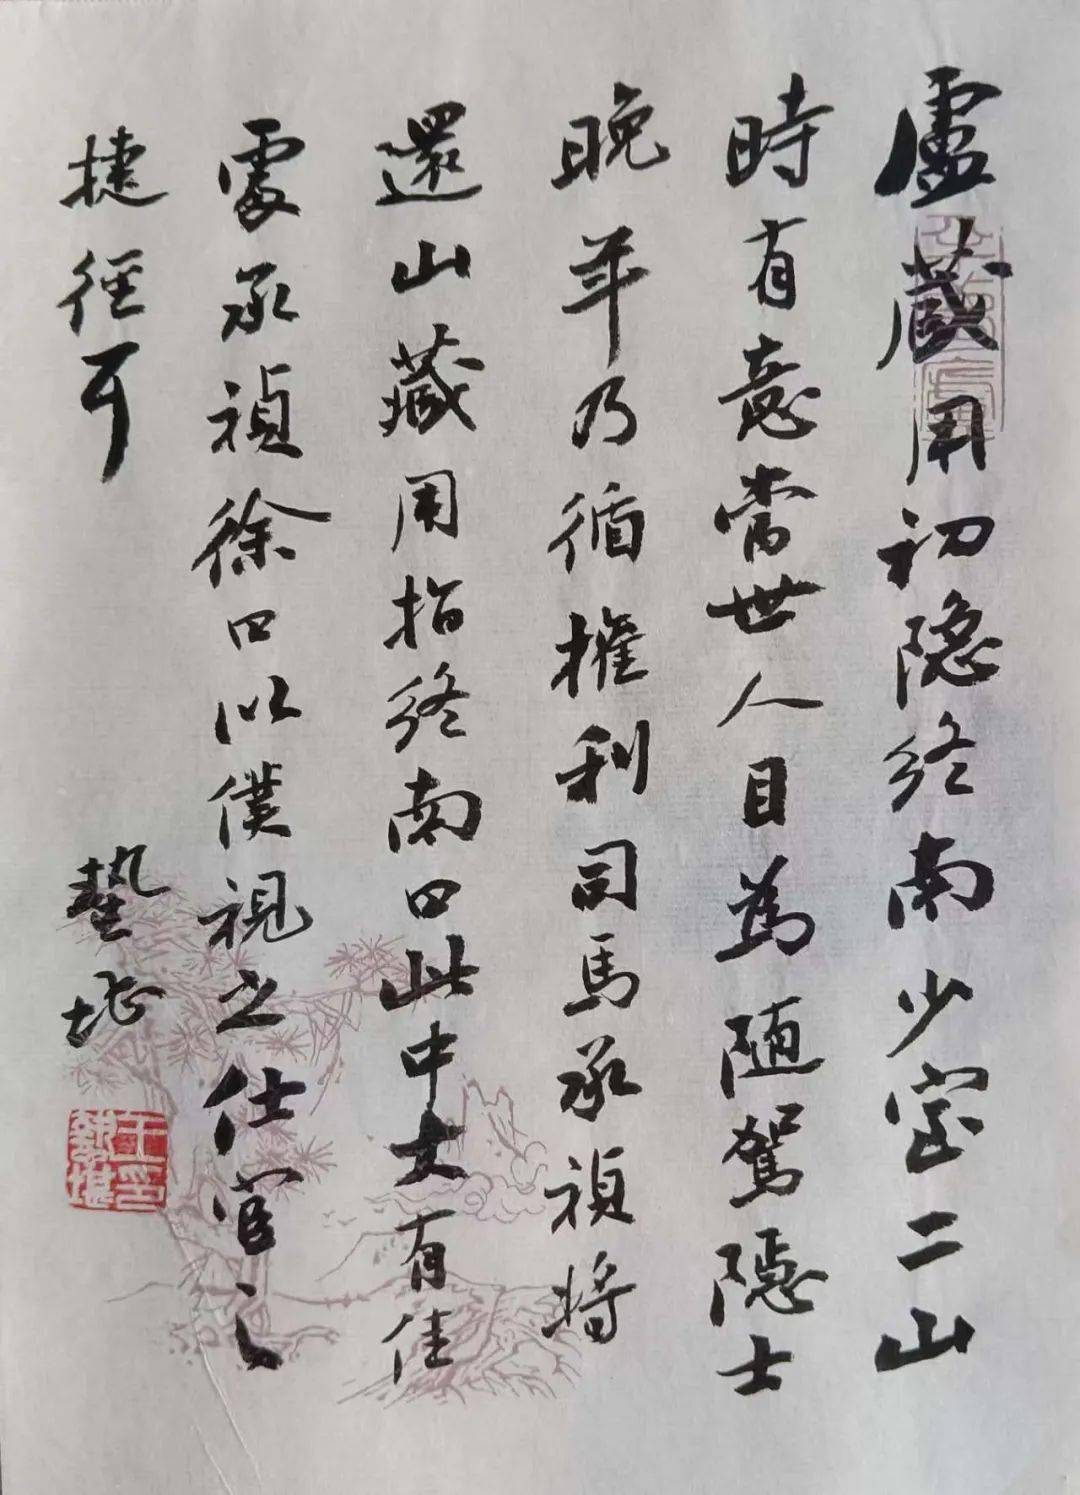 盧藏用初隐終南少室二山
時有意當世人目為随駕隱士
晚年乃循權利司馬承禎將
還山藏用指終南曰此中大有佳
處承禎徐曰以僕視之仕宦之
捷徑耳
蟄堪
王蟄堪印